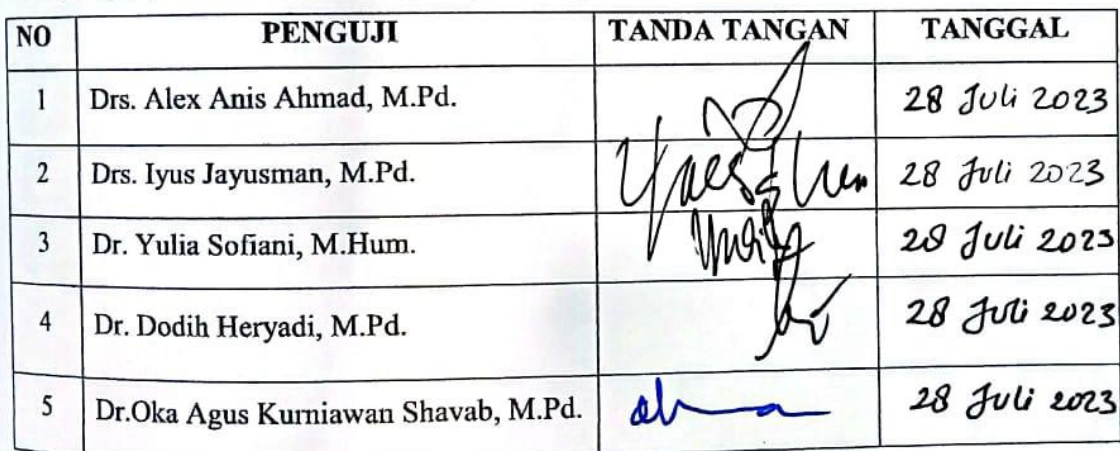 NO PENGUJI TANDA TANGAN TANGGAL
1 Drs. Alex Anis Ahmad, M.Pd. 28 Juli 2023
2 Drs. Iyus Jayusman, M.Pd. 28 Juli 2023
3 Dr. Yulia Sofiani, M.Hum. 28 Juli 2023
4 Dr. Dodih Heryadi, M.Pd. 28 Juli 2023
5 Dr.Oka Agus Kurniawan Shavab, M.Pd. 28 Juli 2023